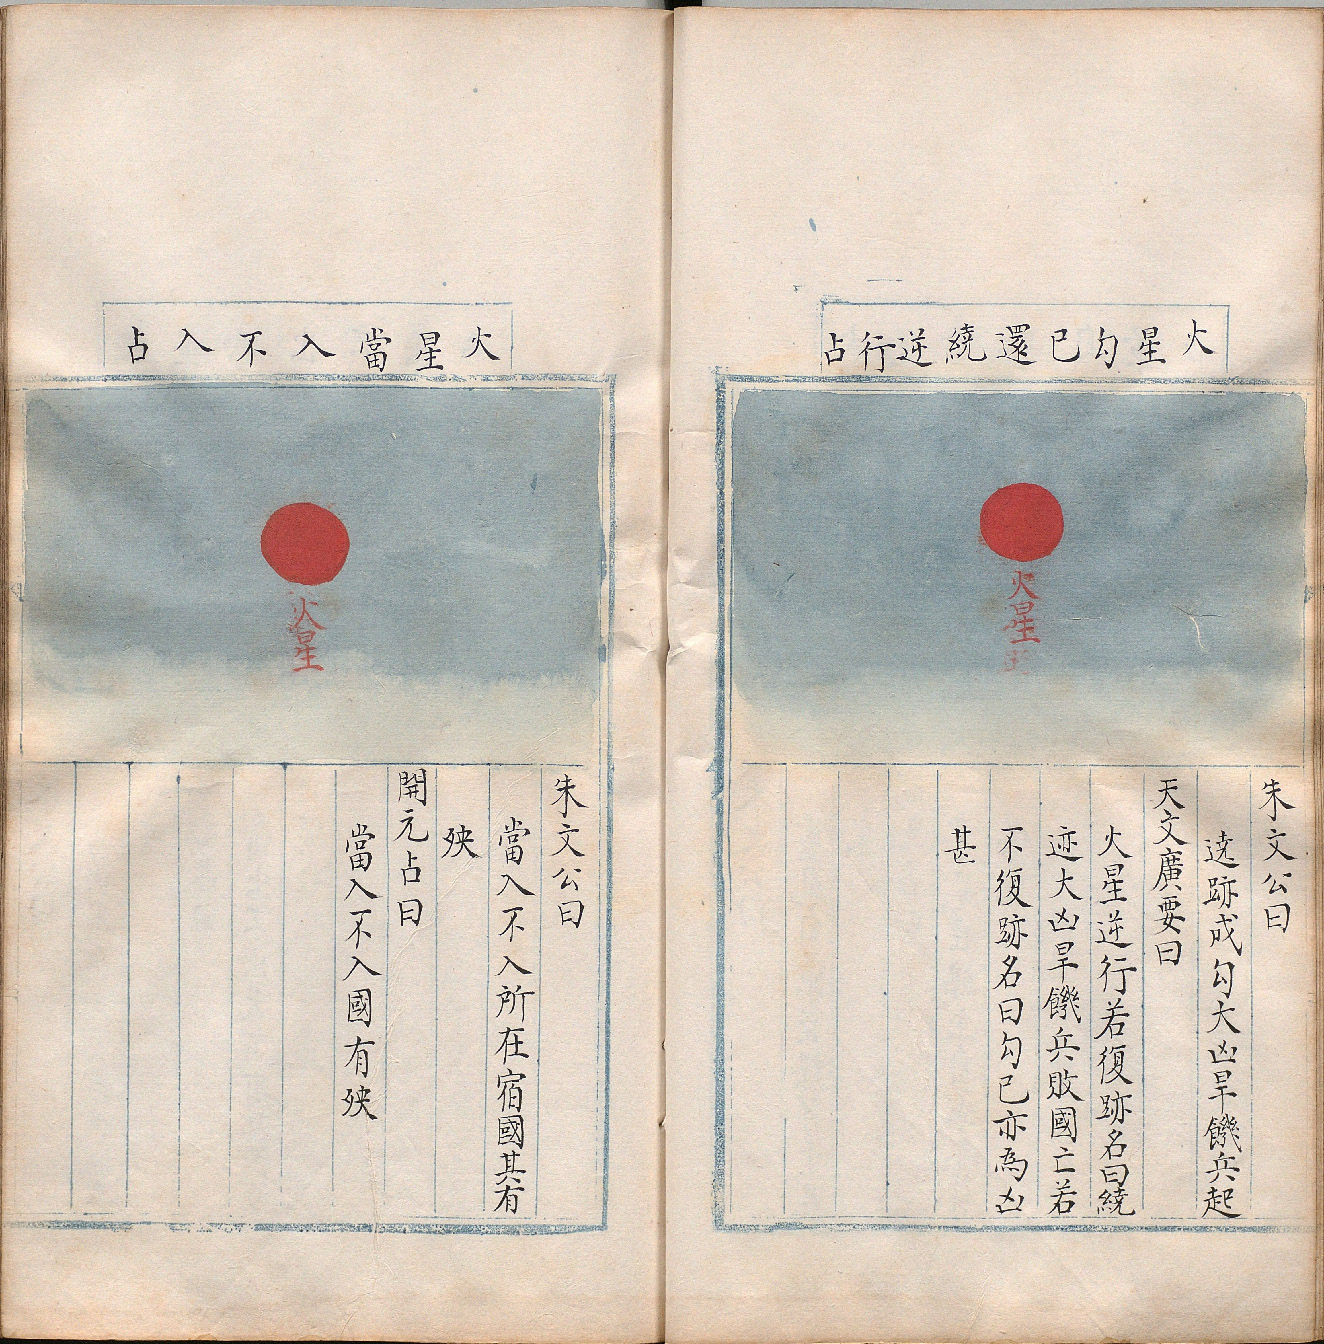 火星勾已還繞逆行占
火星
朱文公曰
遶跡成勾大凶旱饑兵起
天文廣要曰
火星逆行若復跡名曰繞
迹大凶旱饑兵敗國亡若
不復跡名曰勾已亦為凶
甚
火星當入不入占
火星
朱文公曰
當入不入所在宿國其有
殃
開元占曰
當入不入國有殃